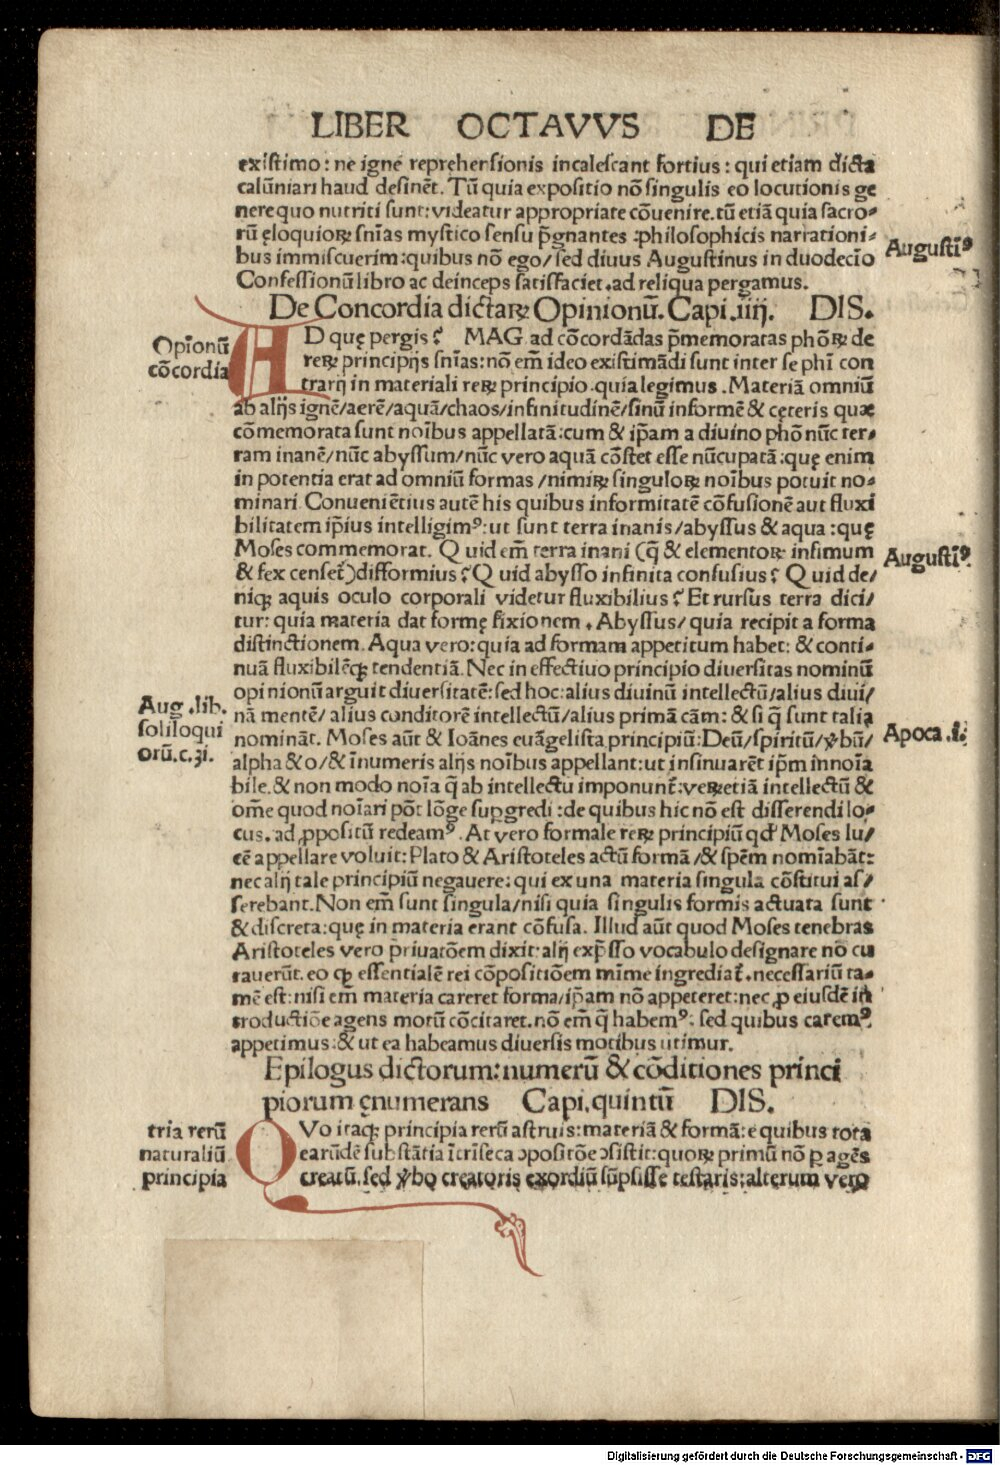 LIBER OCTAVVS DE
existimo: ne igne reprehensionis incalescant fortius: qui etiam dicta
calūniari haud desinēt. Tū quia expositio nō singulis eo locutionis ge
nere quo nutriti sunt: videatur appropriate cōuenire. tū etiā quia sacro⸗
rū ęloquioꝝ sn̄ias mystico sensu p̄gnantes :philosophicis narrationi⸗
bus immiscuerim: quibus nō ego/ sed diuus Augustinus in duodecīo
Augustiꝰ
Confessionū libro ac deinceps satisfaciet. ad reliqua pergamus.
De Concordia dictaꝝ Opinionū. Capi .iiij. DIS.
Opīonū
cōcordia
AD quę pergis? MAG ad cōcordādas p̄memoratas phōꝝ de
reꝝ principijs sn̄ias: nō em̄ ideo existimādi sunt inter se phi con
trarij in materiali reꝝ principio. quia legimus. Materiā omniū
ab alijs ignē/aerē/aquā/chaos/infinitudinē/sinū informē & cęteris quæ
cōmemorata sunt noībus appellatā: cum & ip̄am a diuino phō nūc ter⸗
ram inanē/nūc abyssum/nūc vero aquā cōstet esse nūcupatā: quę enim
in potentia erat ad omniū formas /nimiꝝ singuloꝝ noībus potuit no⸗
minari. Conueniētius autē his quibus informitatē cōfusionē aut fluxi
bilitatem ip̄ius intelligimꝰ: ut sunt terra inanis/abyssus & aqua :quę
Moses commemorat. Quid em̄ terra inani (q̄ & elementoꝝ infimum
Augustiꝰ.
& fex censet̄) difformius? Quid abysso infinita confusius? Quid de/
niqꝫ aquis oculo corporali videtur fluxibilius? Et rursus terra dici/
tur: quia materia dat formę fixionem . Abyssus/ quia recipit a forma
distinctionem. Aqua vero: quia ad formam appetitum habet: & conti⸗
nuā fluxibilēqꝫ tendentiā. Nec in effectiuo principio diuersitas nominū
opinionū arguit diuersitatē: sed hoc: alius diuinū intellectū/alius diui/
Aug .lib.
soliloqui
orū.c.ꝫi.
nā mentē/ alius conditorē intellectū/alius primā cām: & si q̄ sunt talia
nomināt. Moses aūt & Ioānes euāgelista principiū: Deū/spiritū/ v̄bū/
Apoca .i.
alpha & o/ & īnumeris alijs noībus appellant: ut insinuarēt ip̄m innoīa
bile. & non modo noīa q̄ ab intellectu imponunt̄: veꝝ etiā intellectū &
om̄e quod noīari pōt lōge suꝑgredi :de quibus hic nō est disserendi lo⸗
cus. ad ꝓpositū redeamꝰ. At vero formale reꝝ principiū qd̄ Moses lu/
cē appellare voluit: Plato & Aristoteles actū formā /& spēm nomīabāt:
nec alij tale principiū negauere: qui ex una materia singula cōstitui as/
serebant. Non em̄ sunt singula/nisi quia singulis formis actuata sunt
& discreta: quę in materia erant cōfusa. Illud aūt quod Moses tenebras
Aristoteles vero priuatōem dixit: alij exp̄sso vocabulo designare nō cu
rauerūt. eo ꝙ essentialē rei cōpositiōem mīme ingrediat̄. necessariū ta⸗
mē est: nisi em̄ materia careret forma/ip̄am nō appeteret: nec ꝓ eiusdē in
troductiōe agens motū cōcitaret. nō em̄ q̄ habemꝰ: sed quibus caremꝰ
appetimus: & ut ea habeamus diuersis motibus utimur.
Epilogus dictorum: numerū & cōditiones princi
piorum ęnumerans Capi. quintū DIS.
tria rerū
naturaliū
principia
QVo itaqꝫ principia rerū astruis: materiā & formā: e quibus tota
earūdē substātia ītriseca ↄpositōe ↄsistit: quoꝝ primū nō ꝑ agēs
creatū. sed v̄bo creatoris exordiū sūpsisse testaris: alterum vero
Digitalisierung gefördert durch die Deutsche Forschungsgemeinschaft - DFG